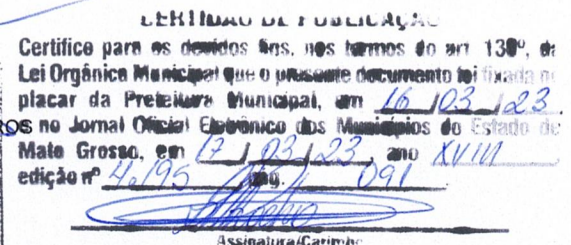 CERTIDÃO DE PUBLICAÇÃO
Certifico para os devidos fins, nos termos do art 130º, da
Lei Orgânica Municipal que o presente documento foi fixada no
placar da Prefeitura Municipal, em 16/03/23
ROS e no Jornal Oficial Eletrônico dos Municípios do Estado de
Mato Grosso, em 17/03/23, ano XVIII
edição nº 4.195 pag. 091
Assinatura/Carimbo